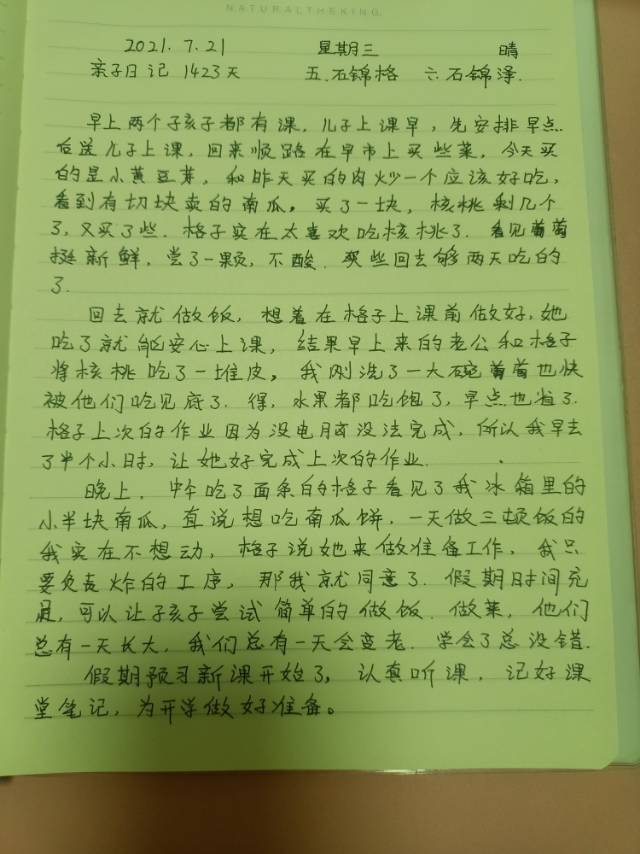 NATURALTHEKING
2021.7.21 星期三 晴
亲子日记 1423天 五.石锦格 六.石锦泽.
早上两个子孩子都有课,儿子上课早,先安排早点.
后送儿子上课,回来顺路在早市上买些菜,今天买
的是小黄豆芽,和昨天买的肉炒一个应该好吃,
看到有切块卖的南瓜,买了一块,核桃剩几个
了,又买了些.格子实在太喜欢吃核桃了.看见葡萄
挺新鲜,尝了一颗,不酸.买些回去够两天吃的
了.
回去就做饭,想着在格子上课前做好,她
吃了就能安心上课,结果早上来的老公和格子
将核桃吃了一堆皮,我刚洗了一大碗葡萄也快
被他们吃见底了.得,水果都吃饱了,早点也省了.
格子上次的作业因为没电脑没法完成,所以我早去
了半个小时,让她好完成上次的作业.
晚上,中午吃了面条的格子看见了我冰箱里的
小半块南瓜,直说想吃南瓜饼,一天做三顿饭的
我实在不想动,格子说她来做准备工作,我只
要负责炸的工序,那我就同意了.假期时间充
足,可以让子孩子尝试简单的做饭.做菜,他们
总有一天长大,我们总有一天会变老.学会了总没错.
假期预习新课开始了,认真听课,记好课
堂笔记,为开学做好准备。